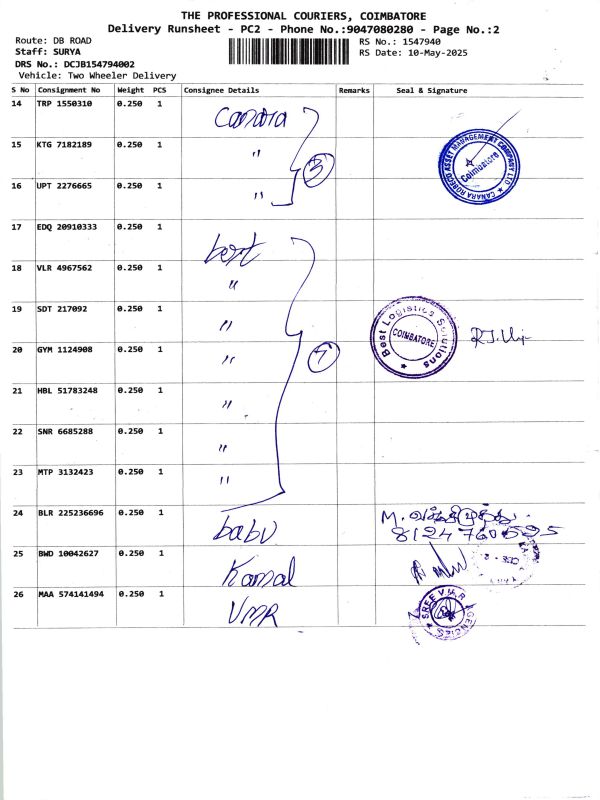 THE PROFESSIONAL COURIERS, COIMBATORE
Delivery Runsheet - PC2 - Phone No.:9047080280 - Page No.:2
Route: DB ROAD
Staff: SURYA
DRS No.: DCJB154794002
Vehicle: Two Wheeler Delivery
RS No.: 1547940
RS Date: 10-May-2025
S No Consignment No Weight PCS Consignee Details Remarks Seal & Signature
14 TRP 1550310 0.250 1 Canara
15 KTG 7182189 0.250 1 " 3
CANARA ROBECO ASSET MANAGEMENT COMPANY LTD
Coimbatore
16 UPT 2276665 0.250 1 "
17 EDQ 20910333 0.250 1 best
18 VLR 4967562 0.250 1 "
19 SDT 217092 0.250 1 "
Best Logistics Solutions
COIMBATORE
20 GYM 1124908 0.250 1 " 7
21 HBL 51783248 0.250 1 "
22 SNR 6685288 0.250 1 "
23 MTP 3132423 0.250 1 "
24 BLR 225236696 0.250 1 babu M.
8124760595
25 BWD 10042627 0.250 1 Kamal
26 MAA 574141494 0.250 1 VMR
SREE V.M.R AGENCIES